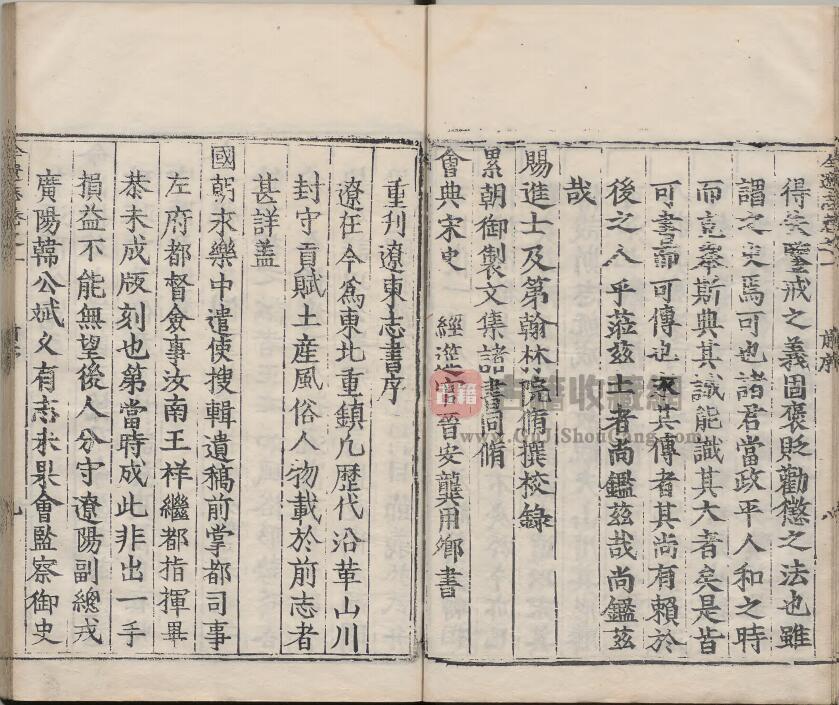 得失鑒戒之義固褒貶勸懲之法也雖
謂之史焉可也諸君當政平人和之時
而克舉斯典其識能識其大者矣是皆
可書而可傳也永其傳者其尚有賴於
後之人乎蒞茲土者尚鑑茲哉尚鑑茲
哉
賜進士及第翰林院脩撰校錄
累朝御製文集諸書同脩
會典宋史 經筵官晉安龔用卿書
重刊遼東志書序
遼在今爲東北重鎮凡歷代沿革山川
封守貢賦土産風俗人物載於前志者
甚詳蓋
國朝永樂中遣使搜輯遺稿前掌都司事
左府都督僉事汝南王祥繼都指揮畢
恭未成版刻也第當時成此非出一手
損益不能無望後人分守遼陽副總戎
廣陽韓公斌乂有志未果會監察御史
八
九
古籍收藏網
www.GuJiShouCang.com